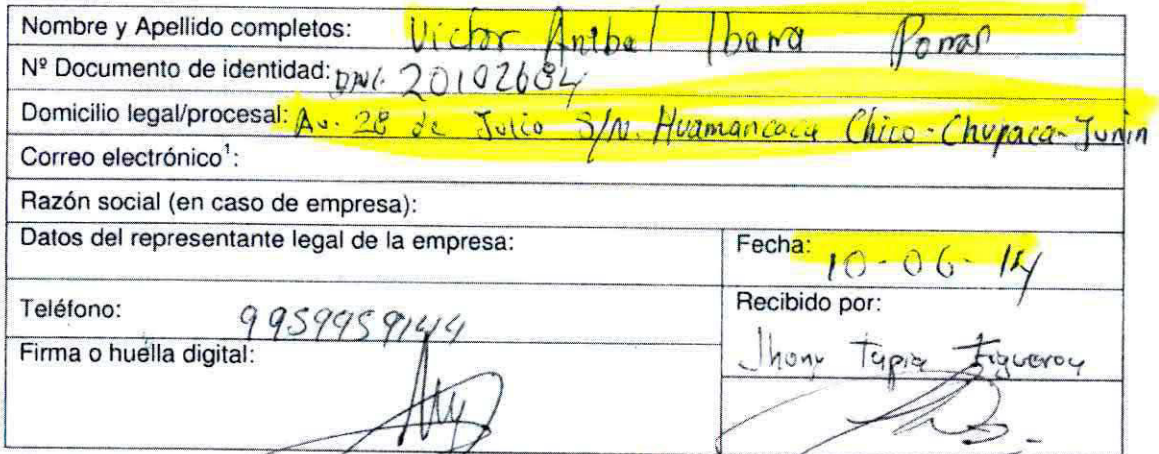 Nombre y Apellido completos: Victor Anibal Ibarra Pomar
Nº Documento de identidad: DNI. 20102684
Domicilio legal/procesal: Av. 28 de Julio S/N. Huamancaca Chico-Chupaca-Junin
Correo electrónico¹:
Razón social (en caso de empresa):
Datos del representante legal de la empresa:
Fecha: 10-06-14
Teléfono:
Recibido por:
Jhony Tapia Figueroa
Firma o huella digital: